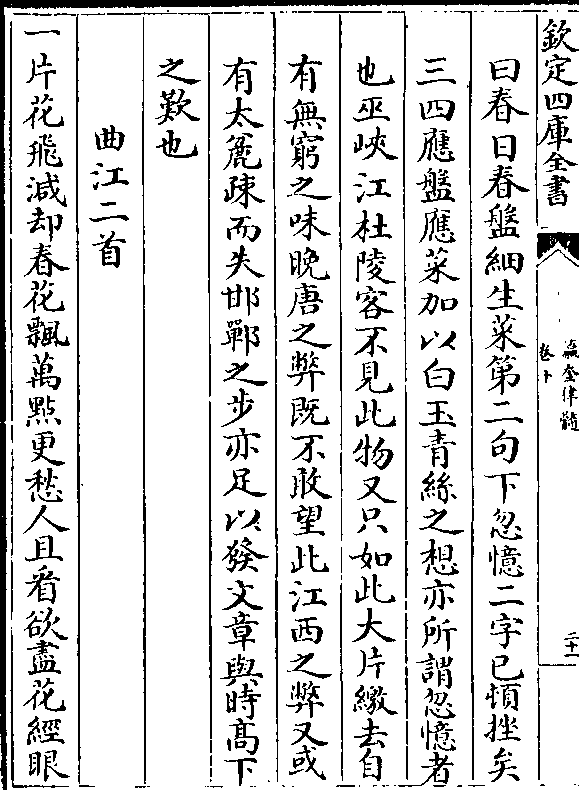 欽定四庫全書
瀛奎律髓
卷十
二十一
曰春日春盤細生菜第二句下忽憶二字已頓挫矣
三四應盤應菜加以白玉青絲之想亦所謂忽憶者
也巫峽江杜陵客不見此物又只如此大片繳去自
有無窮之味晚唐之弊既不敢望此江西之弊又或
有太麄疎而失邯鄲之步亦足以發文章與時髙下
之歎也
曲江二首
一片花飛減却春花飄萬㸃更愁人且看欲盡花經眼